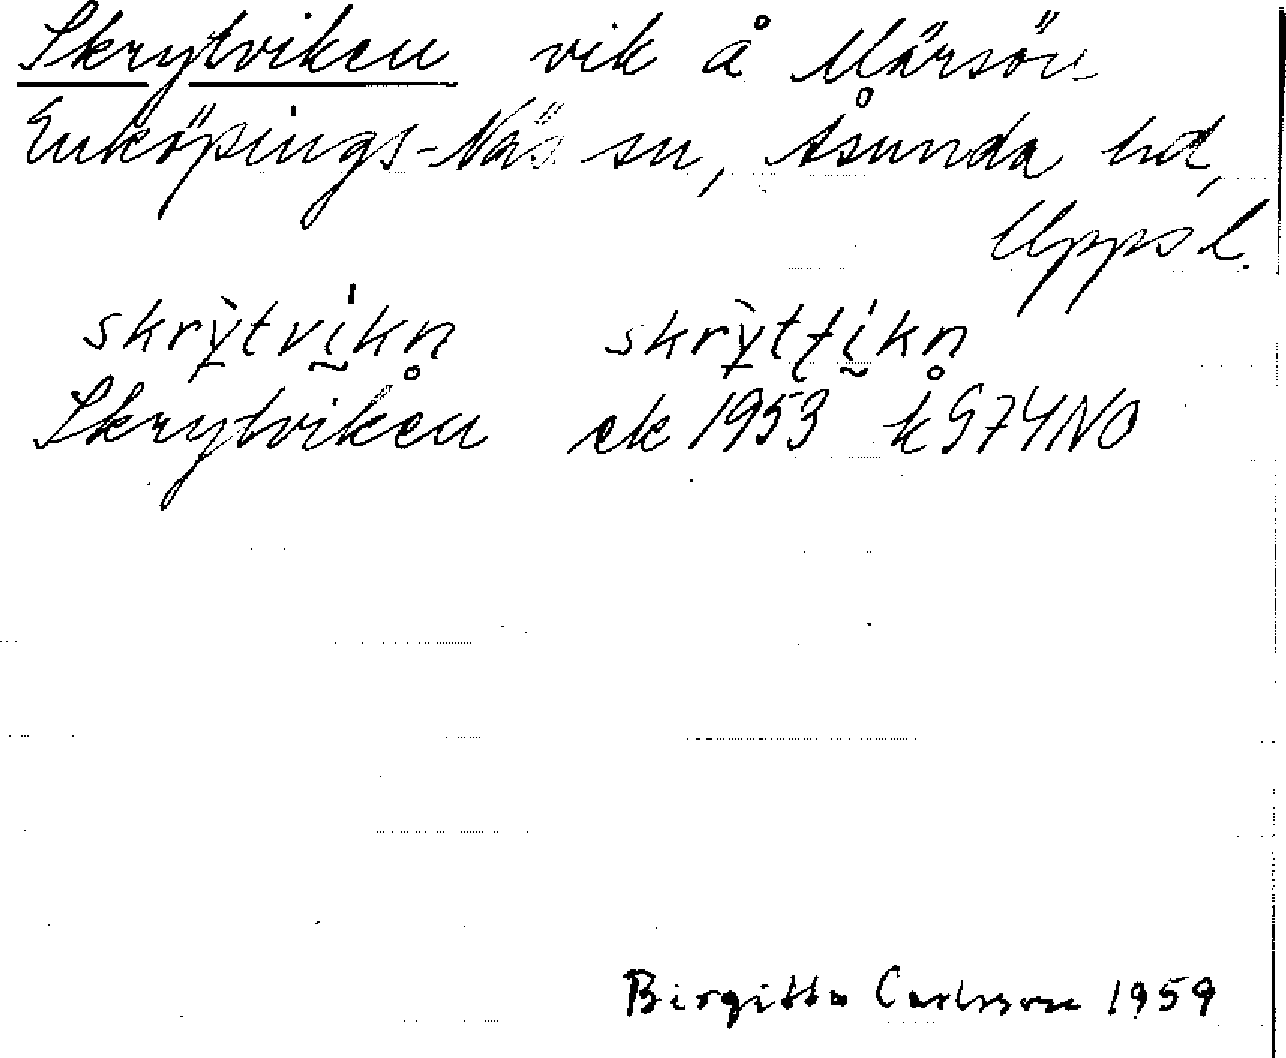 Skrytviken vik å Märsön
Enköpings-Näs sn, Åsunda hd,
Uppsl.
skrỳtvikn̥ skrỳtfikn̥
Skrytviken ek 1953 k 974NO
Birgitta Carlsson 1959